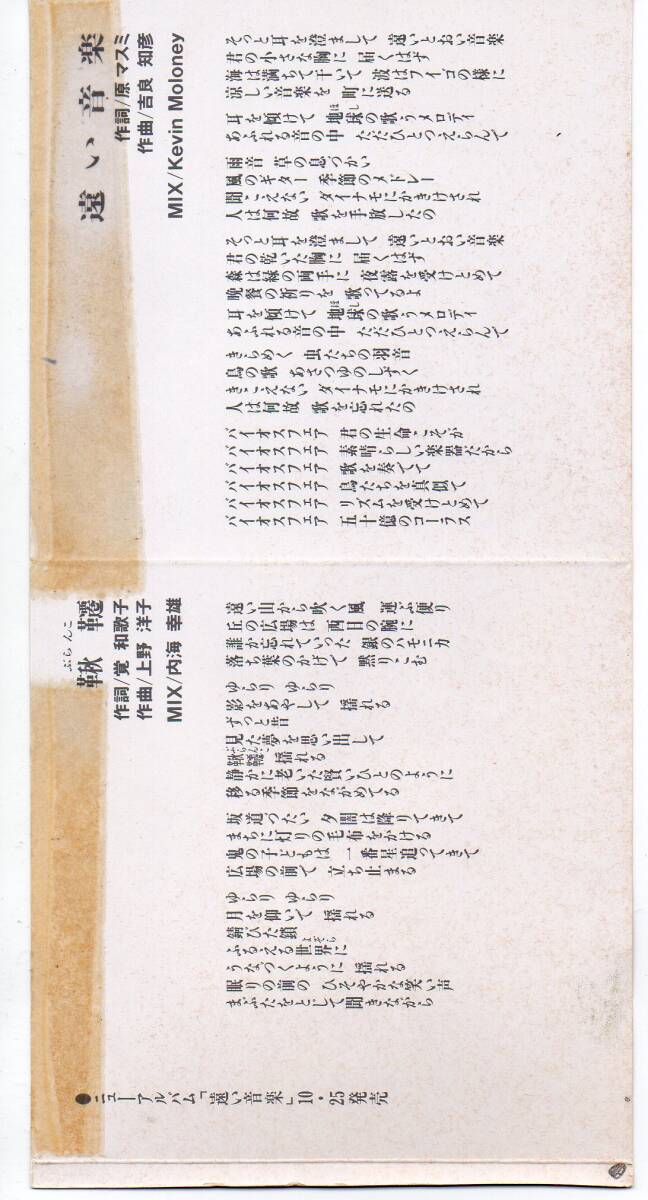 遠い音楽
作詞/原 マスミ
作曲/吉良 知彦
MIX/Kevin Moloney
そっと耳を澄まして 遠いとおい音楽
君の小さな胸に 届くはず
海は満ちて干いて 波はフイゴの様に
涼しい音楽を 町に送る
耳を傾けて 地球の歌うメロディ
ほし
あふれる音の中 ただひとつえらんで
雨音 草の息づかい
風のギター 季節のメドレー
聞こえない ダイナモにかきけされ
人は何故 歌を手放したの
そっと耳を澄まして 遠いとおい音楽
君の乾いた胸に 届くはず
森は緑の両手に 夜露を受けとめて
晩餐の祈りを 歌ってるよ
耳を傾けて 地球の歌うメロディ
ほし
あふれる音の中 ただひとつえらんで
きらめく 虫たちの羽音
鳥の歌 あさつゆのしずく
きこえない ダイナモにかきけされ
人は何故 歌を忘れたの
バイオスフェア 君の生命こそが
バイオスフェア 素晴らしい楽器だから
バイオスフェア 歌を奏でて
バイオスフェア 鳥たちを真似て
バイオスフェア リズムを受けとめて
バイオスフェア 五十億のコーラス
ぶらんこ
鞦韆
作詞/覚 和歌子
作曲/上野 洋子
MIX/内海 幸雄
遠い山から吹く風 運ぶ便り
丘の広場は 西日の腕に
誰か忘れていった 銀のハモニカ
落ち葉のかげで 黙りこむ
ゆらり ゆらり
影をあやして 揺れる
ずっと昔
見た夢を思い出して
ぶらんこ
鞦韆 揺れる
静かに老いた賢いひとのように
移る季節をながめてる
坂道づたい 夕闇は降りてきて
まちに灯りの毛布をかける
鬼の子どもは 一番星追ってきて
広場の前で 立ち止まる
ゆらり ゆらり
月を仰いで 揺れる
錆びた鎖
ふるえる世界に
うなづくように 揺れる
眠りの前の ひそやかな笑い声
まぶたをとじて聞きながら
●ニューアルバム「遠い音楽」10・25発売